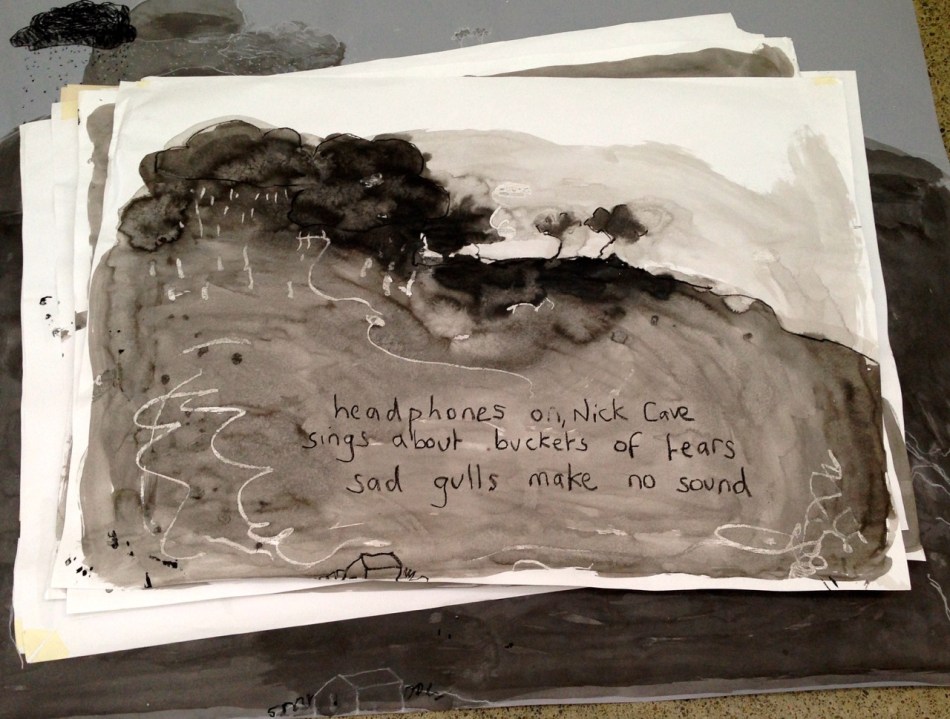 headphones on, Nick Cave
sings about buckets of tears
sad gulls make no sound